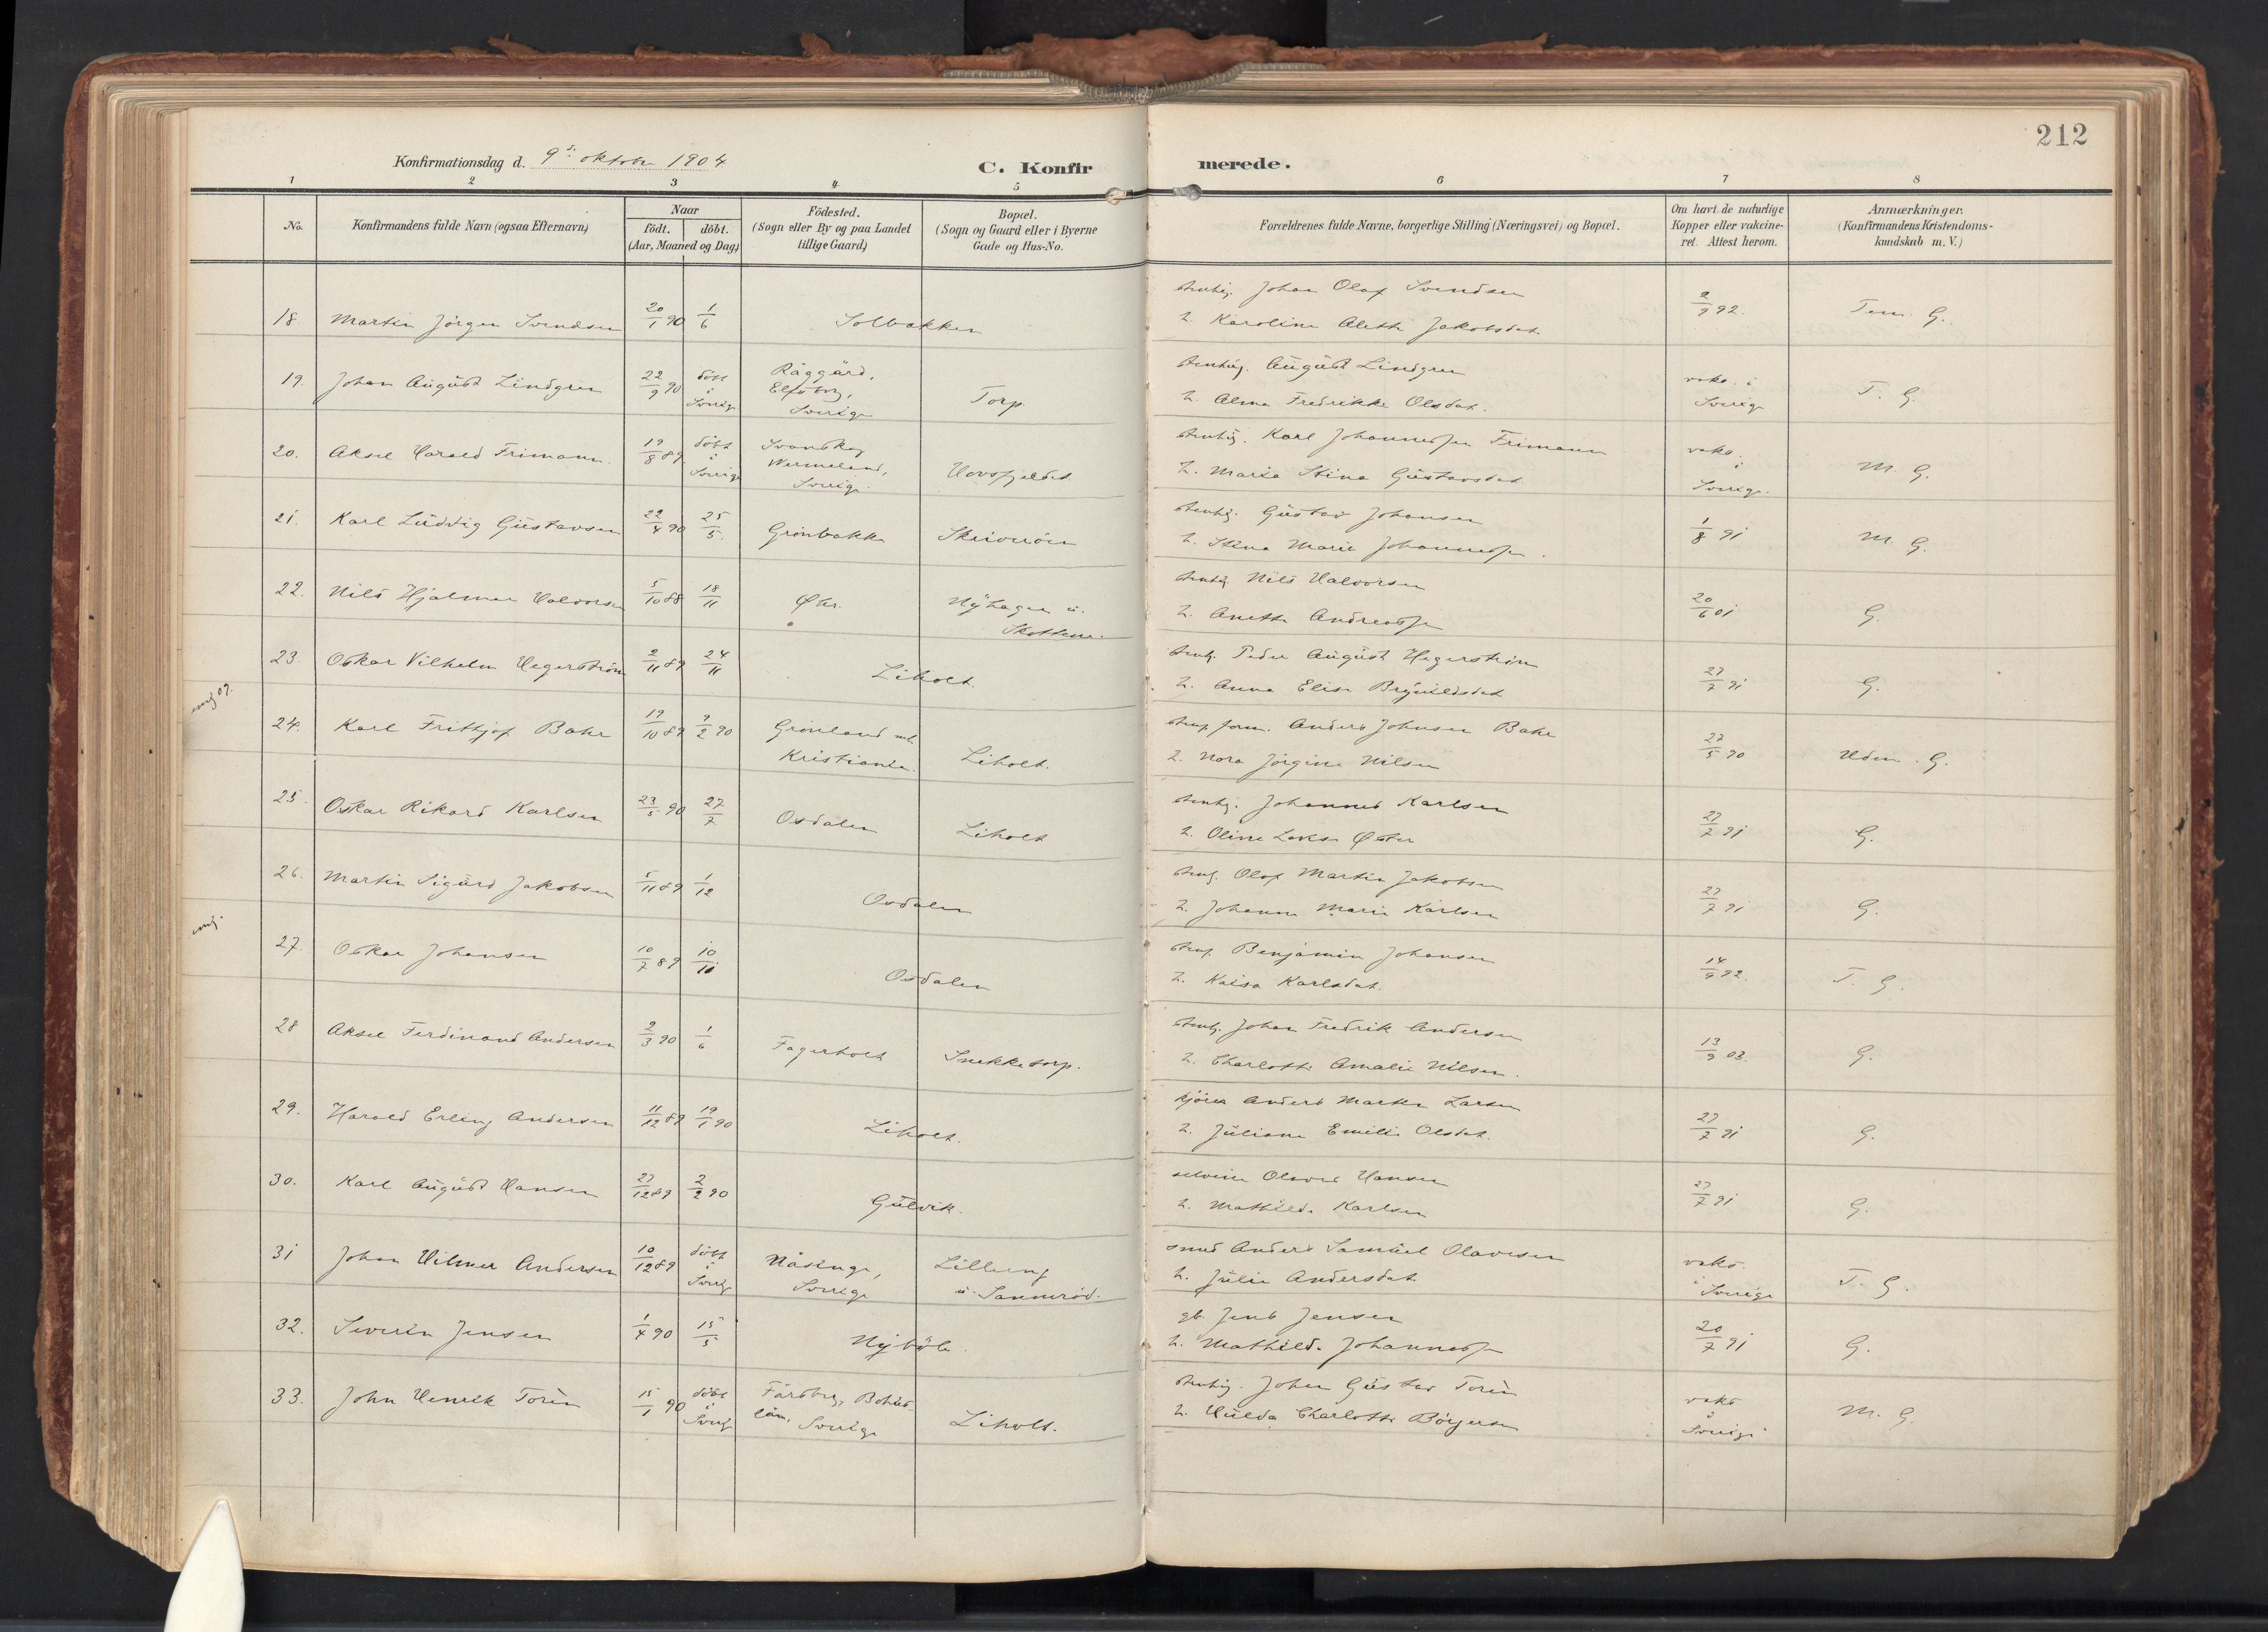 212
Konfirmationsdag d. 9de oktober 1904
C. Konfirmerede.
1 2 3 4 5 6 7 8
No.
Konfirmandens fulde Navn (ogsaa Efternavn)
Naar
født. døbt.
(Aar, Maaned og Dag)
Födested.
(Sogn eller By og paa Landet
tillige Gaard)
Bopæl.
(Sogn og Gaard eller i Byerne
Gade og Hus-No.
Forældrenes fulde Navne, borgerlige Stilling (Næringsvei) og Bopæl.
Om havt de naturlige
Kopper eller vakcine-
ret. Attest herom.
Anmærkninger.
(Konfirmandens Kristendoms-
kundskab m. V.)
18. Martin Jörgen Svendsen 20/1 90 1/6 Solbakken
stenhug. Johan Olaf Svendsen
h. Karoline Alette Jakobsdat. 2/9 92. Tem. G.
19. Johan August Lindgren 22/9 90 döbt i Sverige Råggärd, Elfsborg, Sverige Torp
stenhug. August Lindgren
h. Alma Fredrikke Olsdat. vaks. i Sverige T. G.
20. Aksel Harald Frimann 19/8 89 döbt i Sverige Svanskog Wermeland, Sverige. Hovsfjeldet
stenhug. Karl Johannessen Frimann
h. Maria Stina Gustavsdat. vaks. i Sverige. M. G.
21. Karl Ludvig Gustavsen 22/4 90 25/5. Grönbakke
stenhg. Gustav Johansen
h. Stina Marie Johannessen. 1/8 91 M. G.
22. Nils Hjalmar Halvorsen 5/10 88 18/11 Nyhagen u. Skottene
stenhg. Nils Halvorsen
h. Anette Andreassen 20/6 01 G.
23. Oskar Vilhelm Hegerström 2/11 89 24/11 Liholt.
stenhg. Peder August Hegerström
h. Anna Elise Brynildsdat. 27/7 91 G.
24. Karl Frithjof Bahr 19/10 89 9/2 90 Grönland mh. Kristiania. Liholt.
form. Anders Johnsen Bahr
h. Nora Jörgine Nilsen 27/5 90 Udm. G.
25. Oskar Rikard Karlsen 23/5 90 27/7 Osdalen Liholt
stenhg. Johannes Karlsen
h. Oline 27/7 91 G.
26. Martin Sigurd Jakobsen 5/11 89 1/12 Osdalen
stenhg. Olof Martin Jakobsen
h. Johanne Marie Karlsen 27/7 91 G.
27. Oskar Johansen 10/7 89 10/11 Osdalen
stenhg. Benjamin Johansen
h. Kaisa Karlsdat. 14/9 92. T. G.
28 Aksel Ferdinand Andersen 2/3 90 1/6 Fagerholt Snekketorp.
stenhg. Johan Fredrik Andersen
h. Charlotte Amalie Nilsen. 13/9 03. G.
29. Harald Erling Andersen 11/12 89 19/1 90 Liholt.
kjörer Anders Martin Larsen
h. Juliane Emilie Olsdat. 27/7 91 G.
30. Karl August Hansen 27/12 89 2/2 90 Gulvik.
selveier Olaves Hansen
h. Mathilde Karlsen 27/7 91 G.
31 Johan Hilmer Andersen 10/12 89 döbt i Sverig Näsinge, Sverige u. Sannerød.
smed Anders Samuel Olavesen
h. Julie Andersdat. vaks. i Sverige T. G.
32. Severin Jensen 1/4 90 15/5 Nyböle.
gb. Jens Jensen
h. Mathilde Johannessen 20/7 91 G.
33. John Henrik Torén 15/1 90 döbt i Sverig Bohus län, Sverige Liholt.
stenhug. Johan Gustav Torén
h. Hulda Charlotte Börjesen vaks i Sverige M. G.